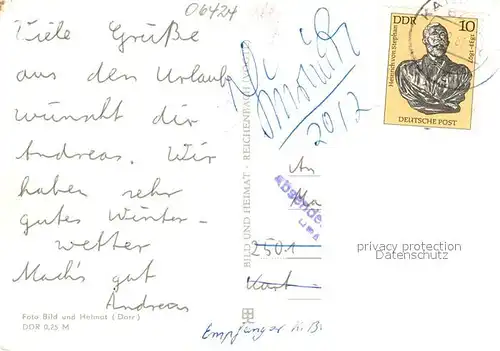 06424
Viele Grüße
aus dem Urlaub
wünscht dir
Andreas. Wir
haben sehr
gutes Winter-
wetter
Mach's gut
Andreas
Foto Bild und Heimat (Darr)
DDR 0,75 M
BILD UND HEIMAT · REICHENBACH
2012
DDR 10
Heinrich von Stephan
1831-1897
DEUTSCHE POST
An
Absender
2501
privacy protection
Datenschutz
Empfänger